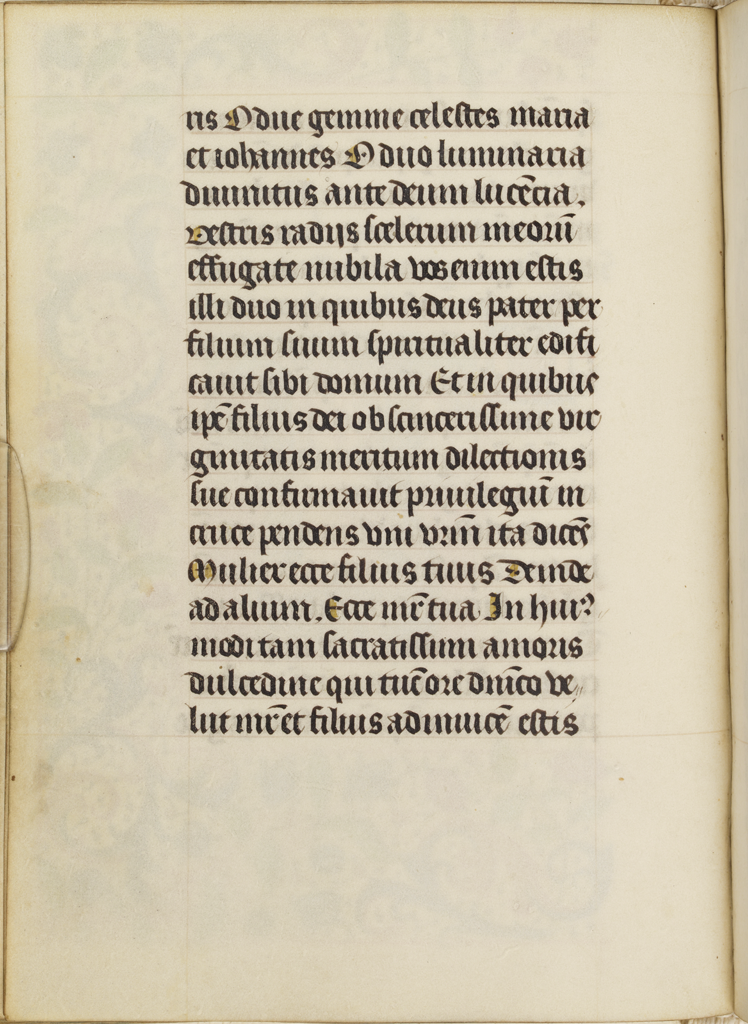 ris O due gemme celestes maria
et iohannes O duo luminaria
diuinitus ante deum lucẽcia .
Vestris radijs scelerum meorũ
effugate nubila vos enim estis
illi duo in quibus deus pater per
filium suum spiritualiter edifi
cauit sibi domum Et in quibus
ip̃e filius dei ob sincerissime vir
ginitatis meritum dilectionis
sue confirmauit priuilegiũ in
cruce pendens vni vr̃m ita dicẽs
Mulier ecce filius tuus Deinde
ad alium . Ecce mr̃ tua In huiꝰ
modi tam sacratissimi amoris
dulcedine qui tũc ore dñico ve„
lut mr̃ et filius adinuicẽ estis